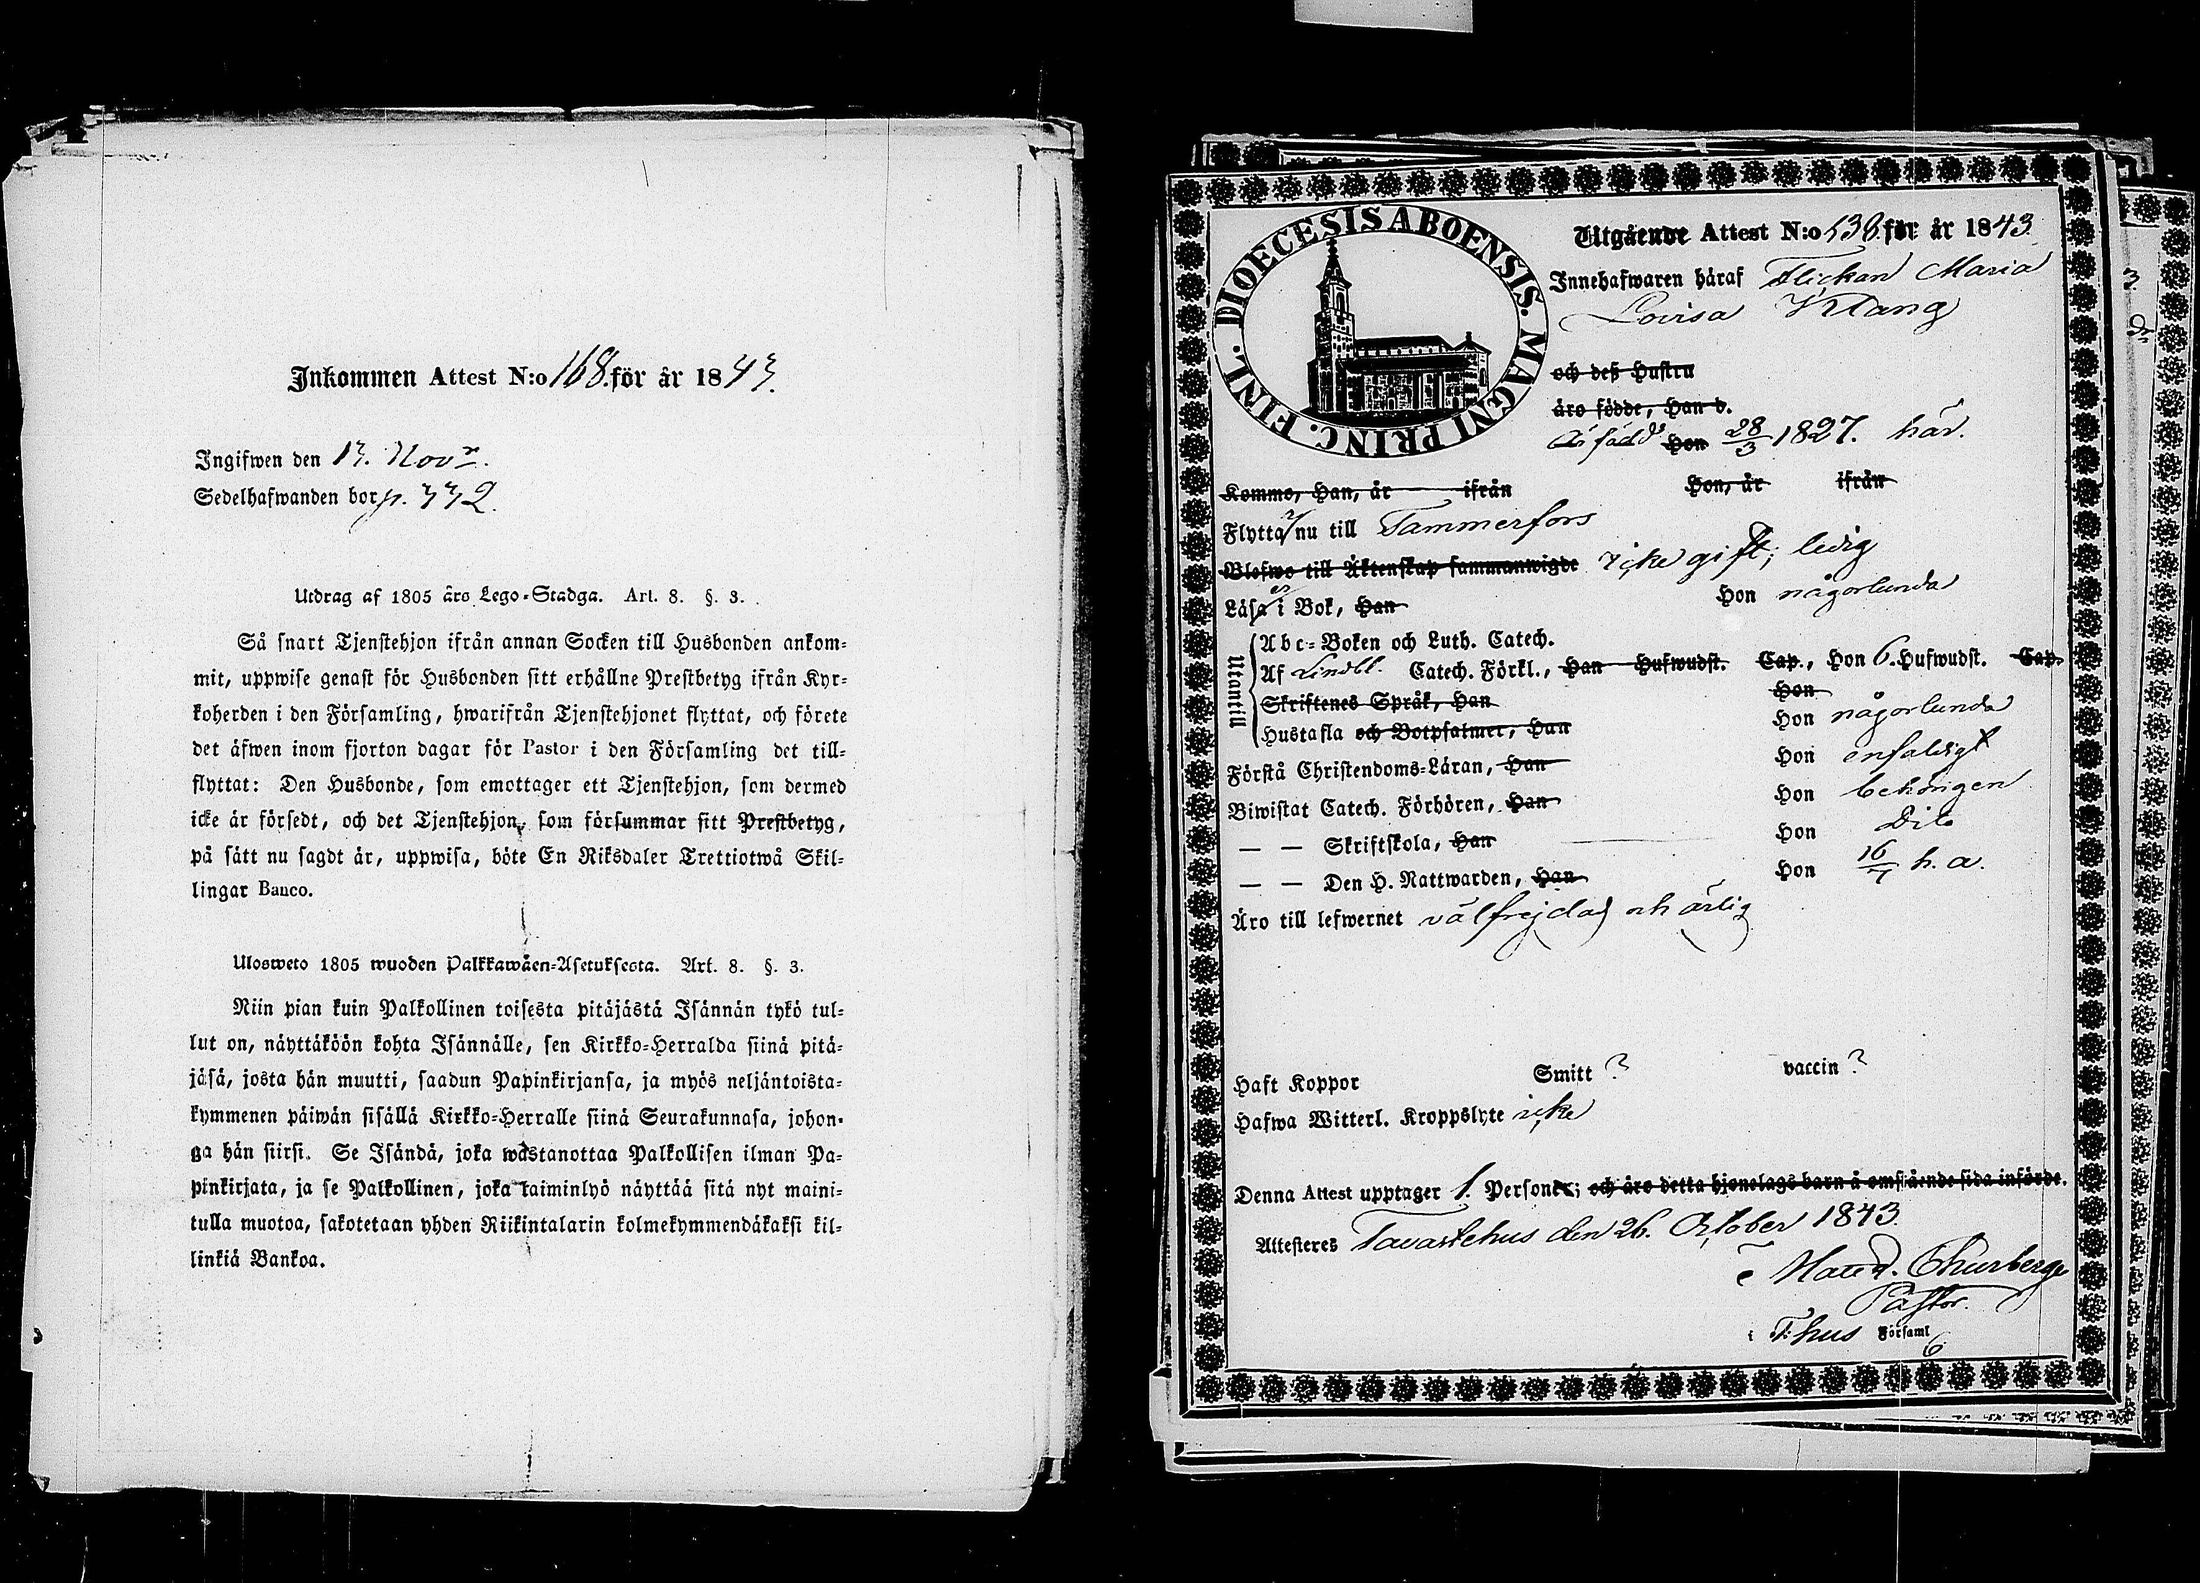 Inkommen Attest N:o 168. för år 1843.
Ingifwen den 13. Novr.
Sedelhafwanden bor p. 332.
Utdrag af 1805 års Lego-Stadga. Art. 8. §. 3.
Så snart Tjenstehjon ifrån annan Socken till Husbonden ankom-
mit, uppwise genast för Husbonden sitt erhållne Prestbetyg ifrån Kyr-
koherden i den Församling, hwarifrån Tjenstehjonet flyttat, och förete
det äfwen inom fjorton dagar för Pastor i den Församling det till-
flyttat: Den Husbonde, som emottager ett Tjenstehjon, som dermed
icke är försedt, och det Tjenstehjon, som försummar sitt Prestbetyg,
på sätt nu sagdt är, uppwisa, böte En Riksdaler Trettiotwå Skil-
lingar Banco.
Ulosweto 1805 wuoden Palkkawäen-Asetuksesta. Art. 8. §. 3.
Niin pian kuin Palkollinen toisesta pitäjästä Isännän tykö tul-
lut on, näyttäköön kohta Isännälle, sen Kirkko-Herralda siinä pitä-
jäsä, josta hän muutti, saadun Papinkirjansa, ja myös neljäntoista-
kymmenen päiwän sisällä Kirkko-Herralle siinä Seurakunnasa, johon-
ga hän siirsi. Se Isändä, joka wastanottaa Palkollisen ilman Pa-
pinkirjata, ja se Palkollinen, joka laiminlyö näyttää sitä nyt maini-
tulla muotoa, sakotetaan yhden Riikintalarin kolmekymmendäkaksi kil-
linkiä Bankoa.
DIOECESIS ABOENSIS. MAGNI PRINC. FINL.
Utgående Attest N:o 138. för år 1843.
Innehafwaren häraf Flickan Maria
Lovisa
och deß Hustru
äro födde, Han d.
är född Hon 28/3 1827. här.
Komme, Han, år ifrån Hon, år ifrån
Flytta nu till Tammerfors
Blefwo till Äktenskap sammanwigde icke gift; ledig
Läsa i Bok, Han Hon någorlunda
Utantill
Abc-Boken och Luth. Catech.
Af Lindbl. Catech. Förkl., Han Hufwudst. Cap., Hon 6. Hufwudst. Cap.
Skriftenes Språk, Han Hon
Hustafla och Botpsalmer, Han Hon någorlunda
Förstå Christendoms-Läran, Han Hon enfaldigt
Biwistat Catech. Förhören, Han Hon behörigen
— — Skriftskola, Han Hon Dito
— — Den H. Nattwarden, Han Hon 16/7 h. a.
Äro till lefwernet välfrejdad och ärlig
Haft Koppor Smitt ? vaccin ?
Hafwa Witterl. Kroppslyte icke
Denna Attest upptager 1. Personer; och äro detta hjonelags barn å omstående sida införde.
Attesteres Tavastehus den 26. October 1843.
Thurberg
Pastor.
i T:hus Församl
6